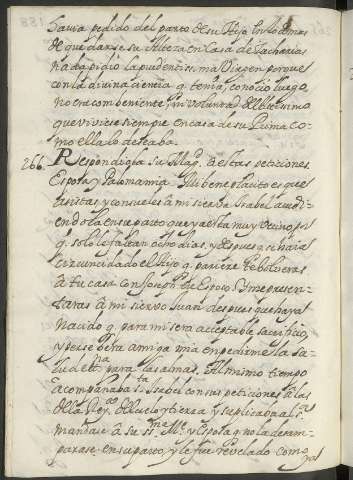 hauia pedido del parto de su Hijo. En lo demas
de quedarse su Alteza en Casa de Zacharias
nada pidio la prudentissima Virgen porque
con la diuina ciencia q. tenia, conocio luego,
no era combeniente, ni voluntad del Altissimo
que viuiese siempre en casa de su Prima co-
mo ella lo deseaba.
266. Respondiola su Mag.d a estas peticiones
Esposa y Paloma mia. Mi beneplacito es que
asistas, y consueles à mi sierua Isabel acudi-
endola en su parto que ya esta muy vecino, por
q. solo le faltan ocho dias, y despues q. se haia
circuncidado el Hijo q. pariere te bolueras
à tu casa con Joseph tu Esposo. Y me presen-
taras à mi sieruo Juan despues que haya
nacido q. para mi sera acceptable sacrificio,
y persebera amiga mia en pedirme la sa-
lud etna para las almas. Al mismo tiempo
acompañaba sta Isabel con sus peticiones à las
de la Reyna del cielo y tierra y suplicaba al sr
mandase à su ssma Me y Esposa q. no la desam-
parase en su parto, y le fue reuelado como